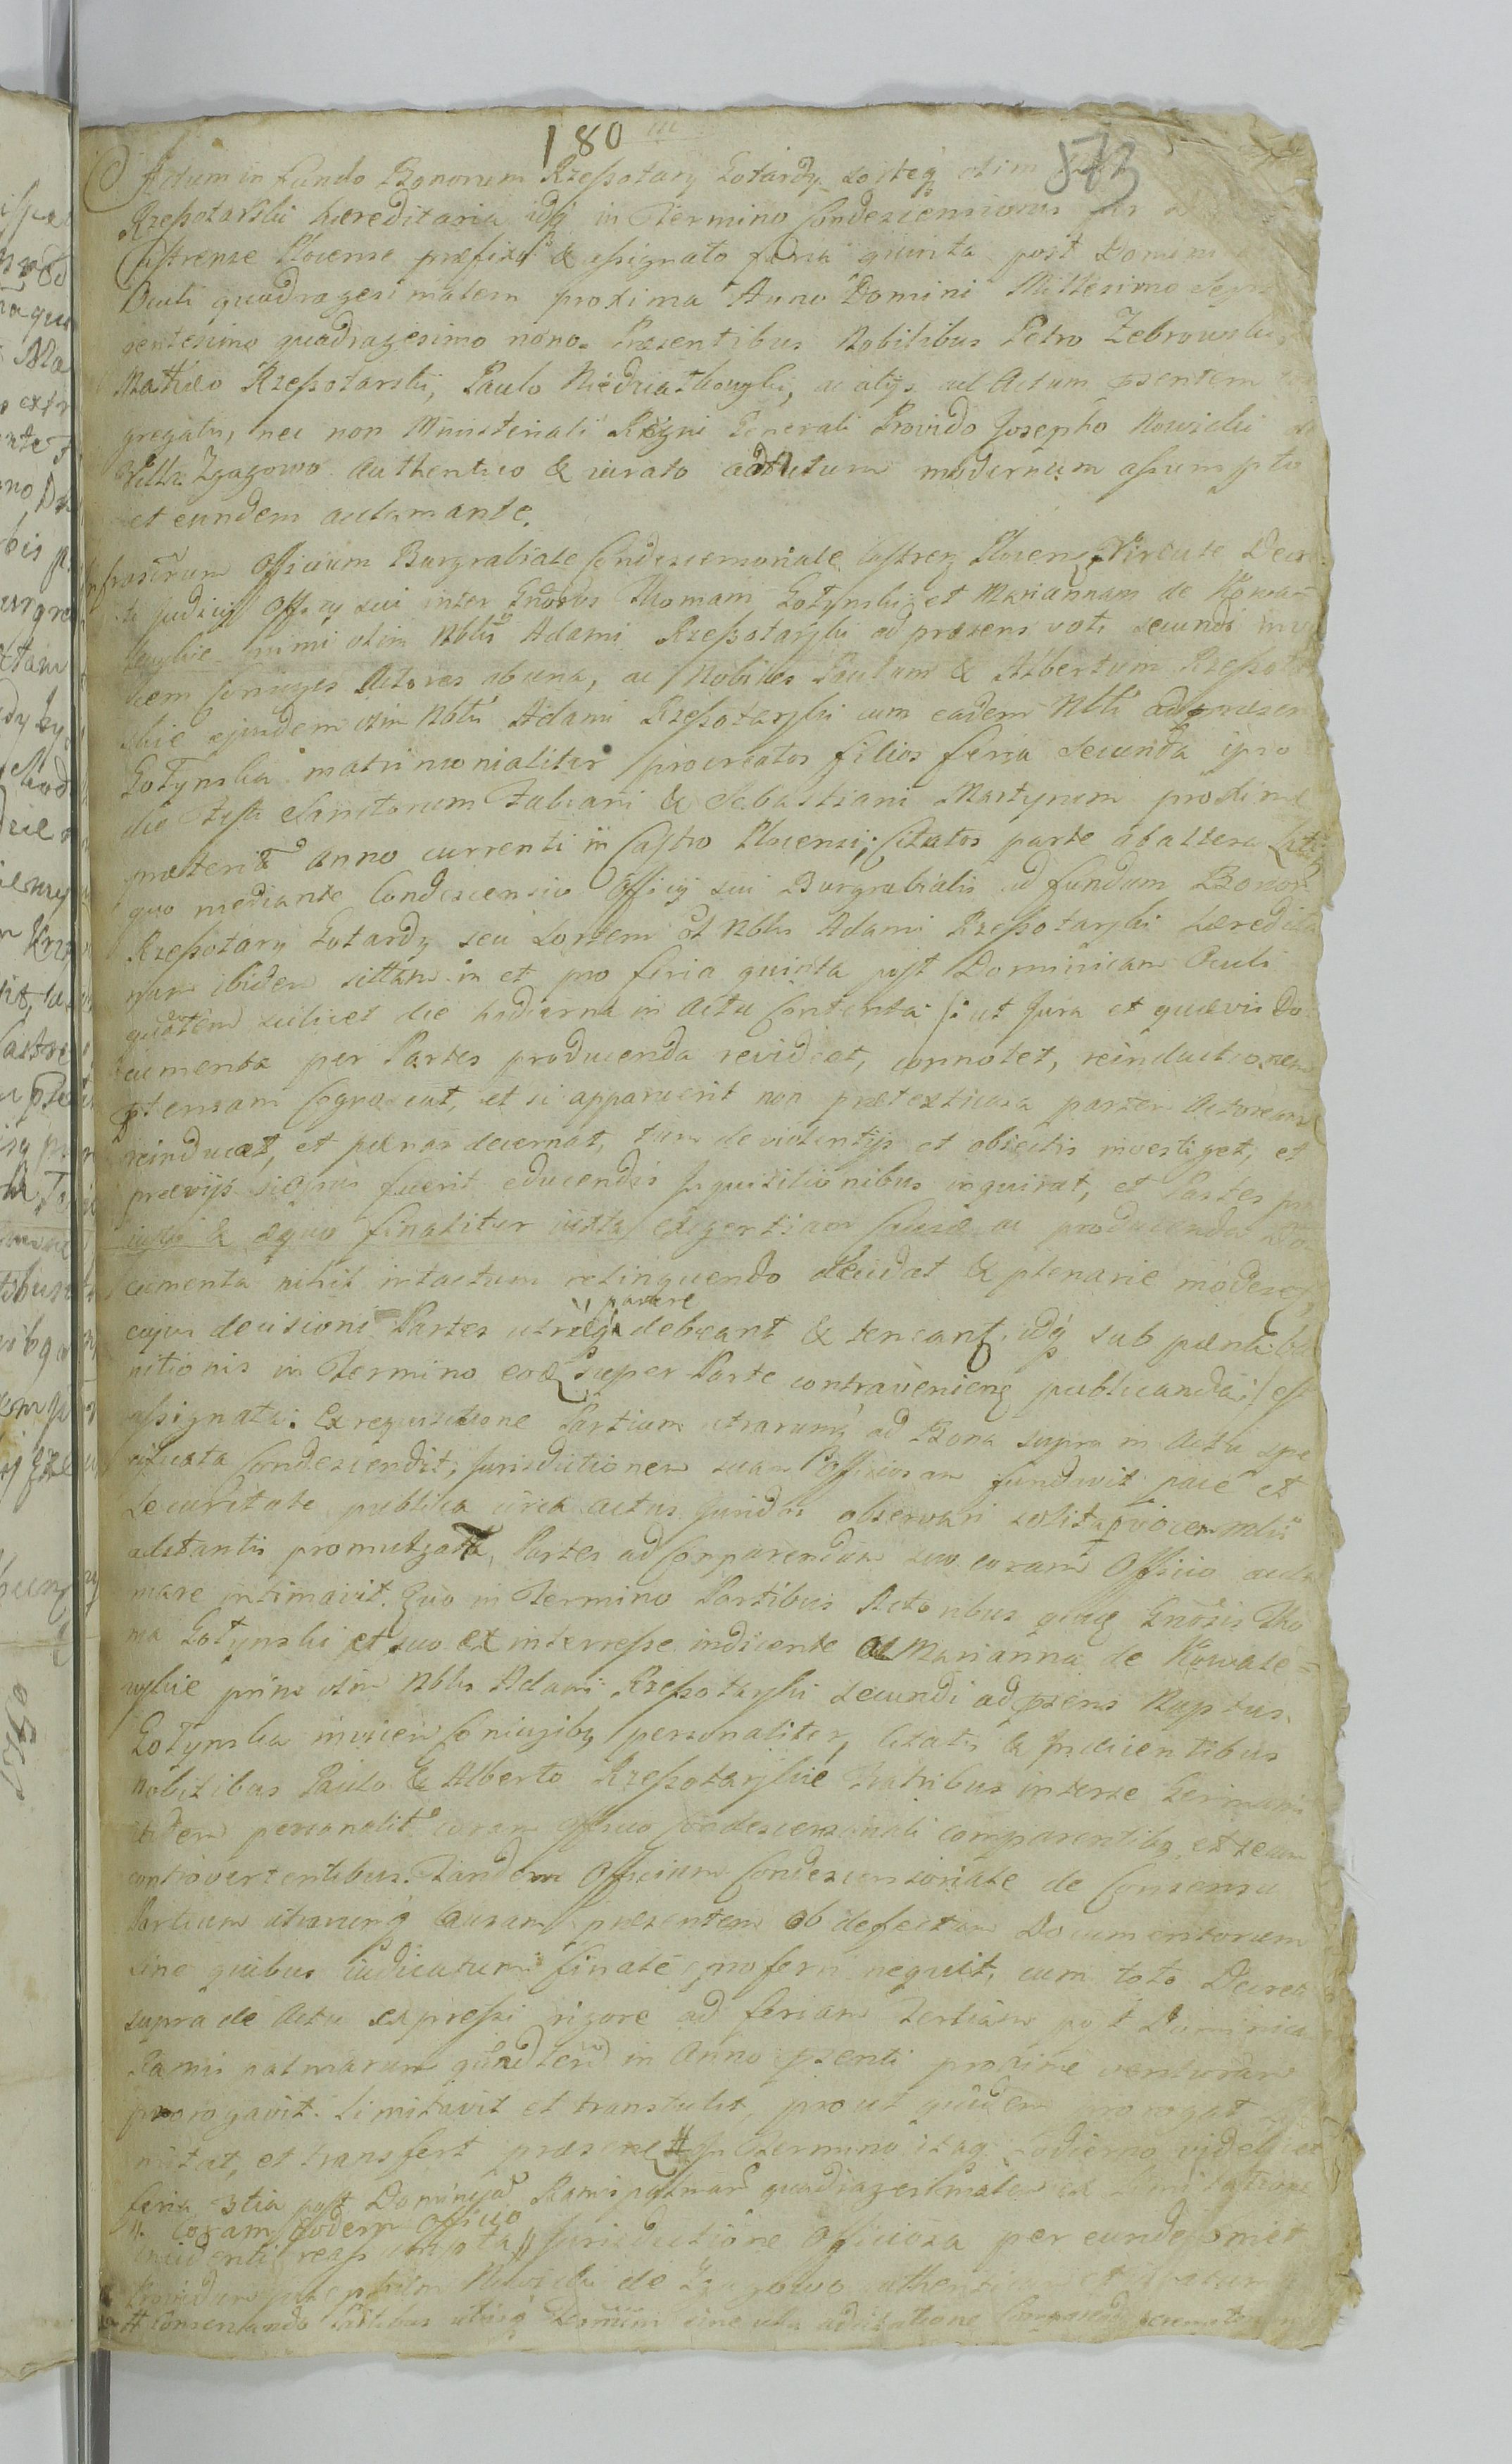 180
573
Actum in fundo Bonorum Rzeszotary Gotardy sorteq olim
Rzeszotarski haereditaria idq in Termino Condescensionis per
Castrense Plocense praefixo & assignato feria quinta post Domini
Oculi quadragesimalem proxima Anno Domini Millesimo Septi
gentesimo quadragesimo nono. Praesentibus Nobilibus Petro Zebrowski,
Mathaeo Rzeszotarski, Paulo ac alijs ad Actum psentem
gregatis, nec non Ministeriali Regni Generali Provido Josepho Nowicki de
Villa Zgagowo Authentico & iurato ad Actum modernum assumpto
et eundem aclamante.
Officium Burgrabiale Condescensoriale Castren Plocens Virtute Decre
ti Judicij Officij sui inter Gnosos Thomam Gotynski et Mariannam de Kowale
wskie primi olim Nblis Adami Rzeszotarski ad praesens voti secundi
cem Coniuges Actores ab una, ac Nobiles Paulum & Albertum Rzeszotar
skie ejusdem olim Nblis Adami Rzeszotarski cum eadem Nbli ad praesen
Gotynska matrimonialiter procreatos filios feria secunda ipso
die festi Sanctorum Fabiani & Sebastiani Martyrum proxime
praeterita Anno currenti in Castro Plocensi; Citatos parte ab altera Lati
quo mediante Condescensio Officij sui Burgrabialis ad fundum Bonor
Rzeszotary Gotardy seu sortem ol Nblis Adami Rzeszotarski haeredita
riam ibidem sitam in et pro feria quinta post Dominicam Oculi
scilicet die hodierna in Actu Contenta /: ut Jura et quaevis Do
cumenta per Partes producenda revideat, connotet, reinductionem
ptensam Cognoscat, et si apparuerit non praetextuosa partem Actoream
reinducat, et paenas decernat, tum de violentijs et obiectis investiget, et
praevijs si opus fuerit educendis Inquisitionibus inquirat, et Partes pro
iusto & aequo finaliter iuxta exigentiam Causae ac producenda Do
cumenta nihil intactum relinquendo decidat & plenarie moderet,
parere
cujus decisioni Partes utraeq debeant & teneant, idq sub paenis ba
nitionis in Termino eod super Parte contravenien publicanda :/ est
assignatu: Ex requisitione Partium utrarumq ad Bona supra in Actu spe
cificata Condescendit, Jurisdictionem suam Officiosam fundavit pace et
securitate publica circa actus Juridos observari solita p vocem Mlis
astantis promulgata, Partes ad Comparendum suo coram Officio acla
mare intimavit. Quo in Termino Partibus Actoribus quae Gnosis Tho
ma Gotynski et suo ex interresse incidente ac Marianna de Kowale=
wskie primo olim Nblis Adami Rzeszotarski secundi ad psens Nuptus
Gotynska invicem Coniugibq personaliter, Citatis & Incidentibus
Nobilibus Paulo & Alberto Rzeszotarskie Fratribus interse Germanis
itidem personalit coram officio condescensoriali comparentibq et secum
controvertentibus. Tandem Officium Condescensoriale de Consensu
Partium utrarumq Causam praesentem ob defectum Documentorum
sine quibus iudicatum finale proferri nequit, cum toto Decreti
supra de Actu expressi rigore ad feriam tertiam post Dominica
Ramis palmarum in Anno psenti proxime venturam
prorogavit. limitavit et transtulit, prout quidem prorogat
mitat, et transfert praesenti In Termino itaq hodierno videlicet
feria 3tia post Dominica Ramispalmar quadragesimalem ex limitatione
coram eodem officio
incidenti reassumpta Jurisdictione Officiosa per eundemmet
Providum Josephum Nowicki de Zgagowo authenticu et iuratum